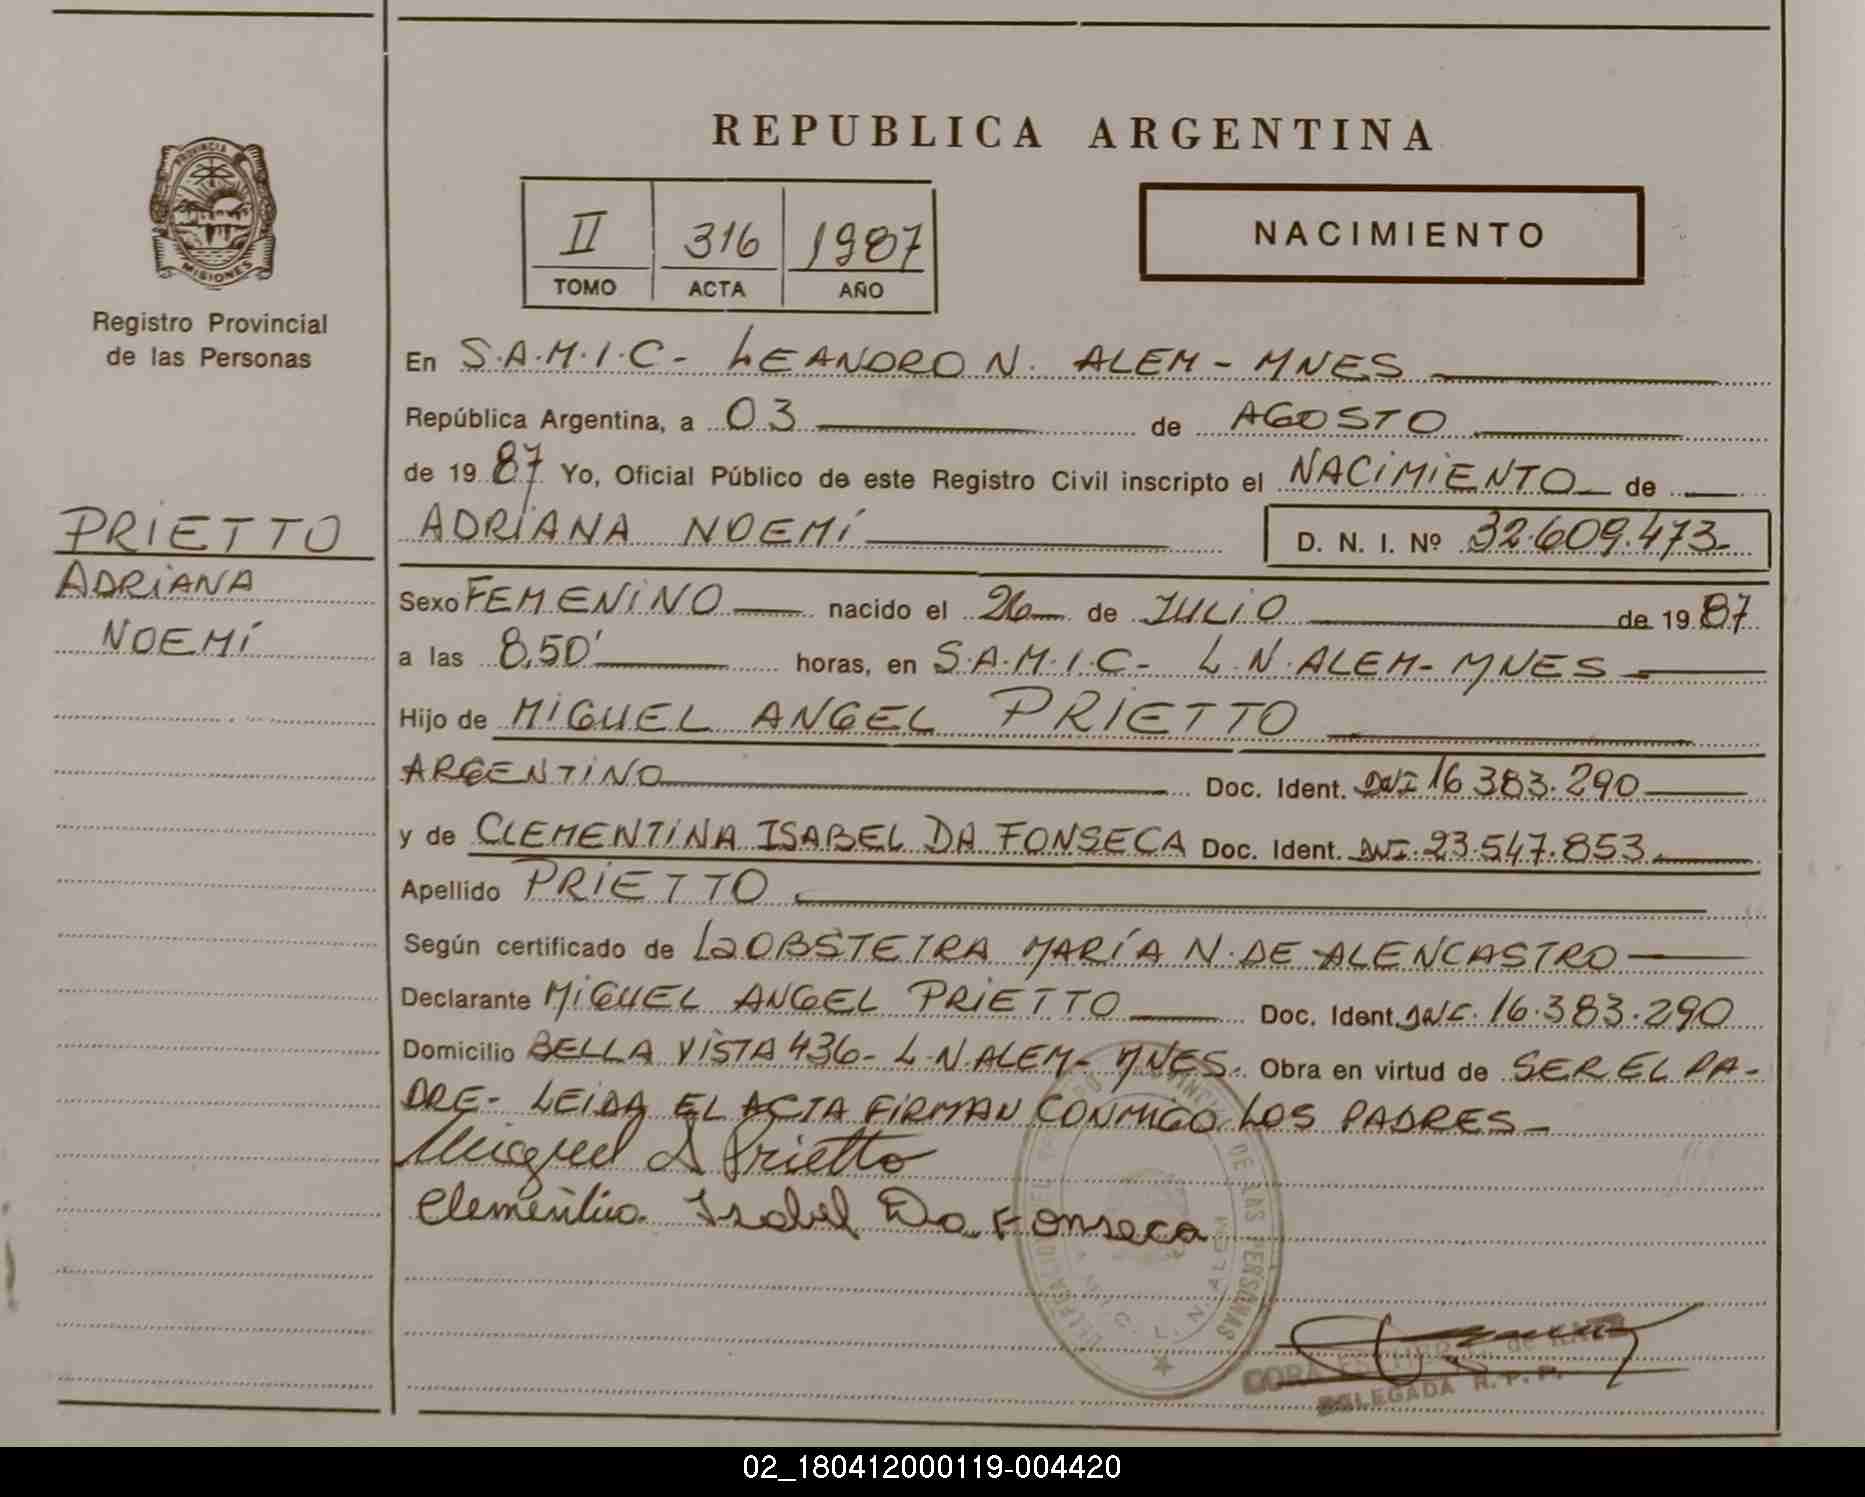 REPUBLICA ARGENTINA
PROVINCIA
MISIONES
Registro Provincial
de las Personas
II 316 1987
TOMO ACTA AÑO
NACIMIENTO
En S.A.M.I.C- LEANDRO N. ALEM - MNES
República Argentina, a 03 de AGOSTO
de 1987 Yo, Oficial Público de este Registro Civil inscripto el NACIMIENTO de
ADRIANA NOEMÍ D. N. I. Nº 32.609.473
PRIETTO
ADRIANA
NOEMÍ
Sexo FEMENINO nacido el 26 de JULIO de 1987
a las 8,50' horas, en S.A.M.I.C- L.N. ALEM- MNES
Hijo de MIGUEL ANGEL PRIETTO
ARGENTINO Doc. Ident. DNI 16.383.290
y de CLEMENTINA ISABEL DA FONSECA Doc. Ident. DNI. 23.547.853
Apellido PRIETTO
Según certificado de La OBSTETRA MARÍA N. DE ALENCASTRO
Declarante MIGUEL ANGEL PRIETTO Doc. Ident. 16.383.290
Domicilio BELLA VISTA 436- L.N. ALEM- MNES. Obra en virtud de SER EL PA-
DRE- LEIDA EL ACTA FIRMAN CONMIGO LOS PADRES-
Miguel A Prietto
Clementina Isabel Da Fonseca
DE LAS PERSONAS
L. N. ALEM
DORA ESTHER de
DELEGADA R. P. P.
02_180412000119-004420